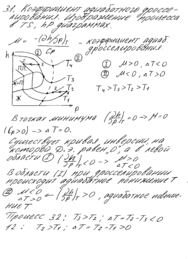 31. Коэффициент адиабатного дроссе-
лирования. Изображение процесса
в TS, hP диаграммах
μ = -(∂h/∂p)T / Cp - коэффициент адиаб.
дросселирования
h
① μ>0, ΔT<0
② μ<0, ΔT>0
T4>T3>T2>T1
P
В точках минимума (∂h/∂p)T=0 → μ=0
(Cp>0) → ΔT=0.
Существует кривая инверсии, на
которой Д.Э. равен „0", а в левой
области ① (∂h/∂p)T<0 → μ>0
ΔT<0
В области (I) при дросселировании
происходит адиабатное понижение T
② μ<0
ΔT>0 (∂h/∂p)T>0, адиабатное повыше-
ние T
Процесс 32: T3>T2; ΔT=T2-T3<0
12: T2>T1; ΔT=T2-T1>0